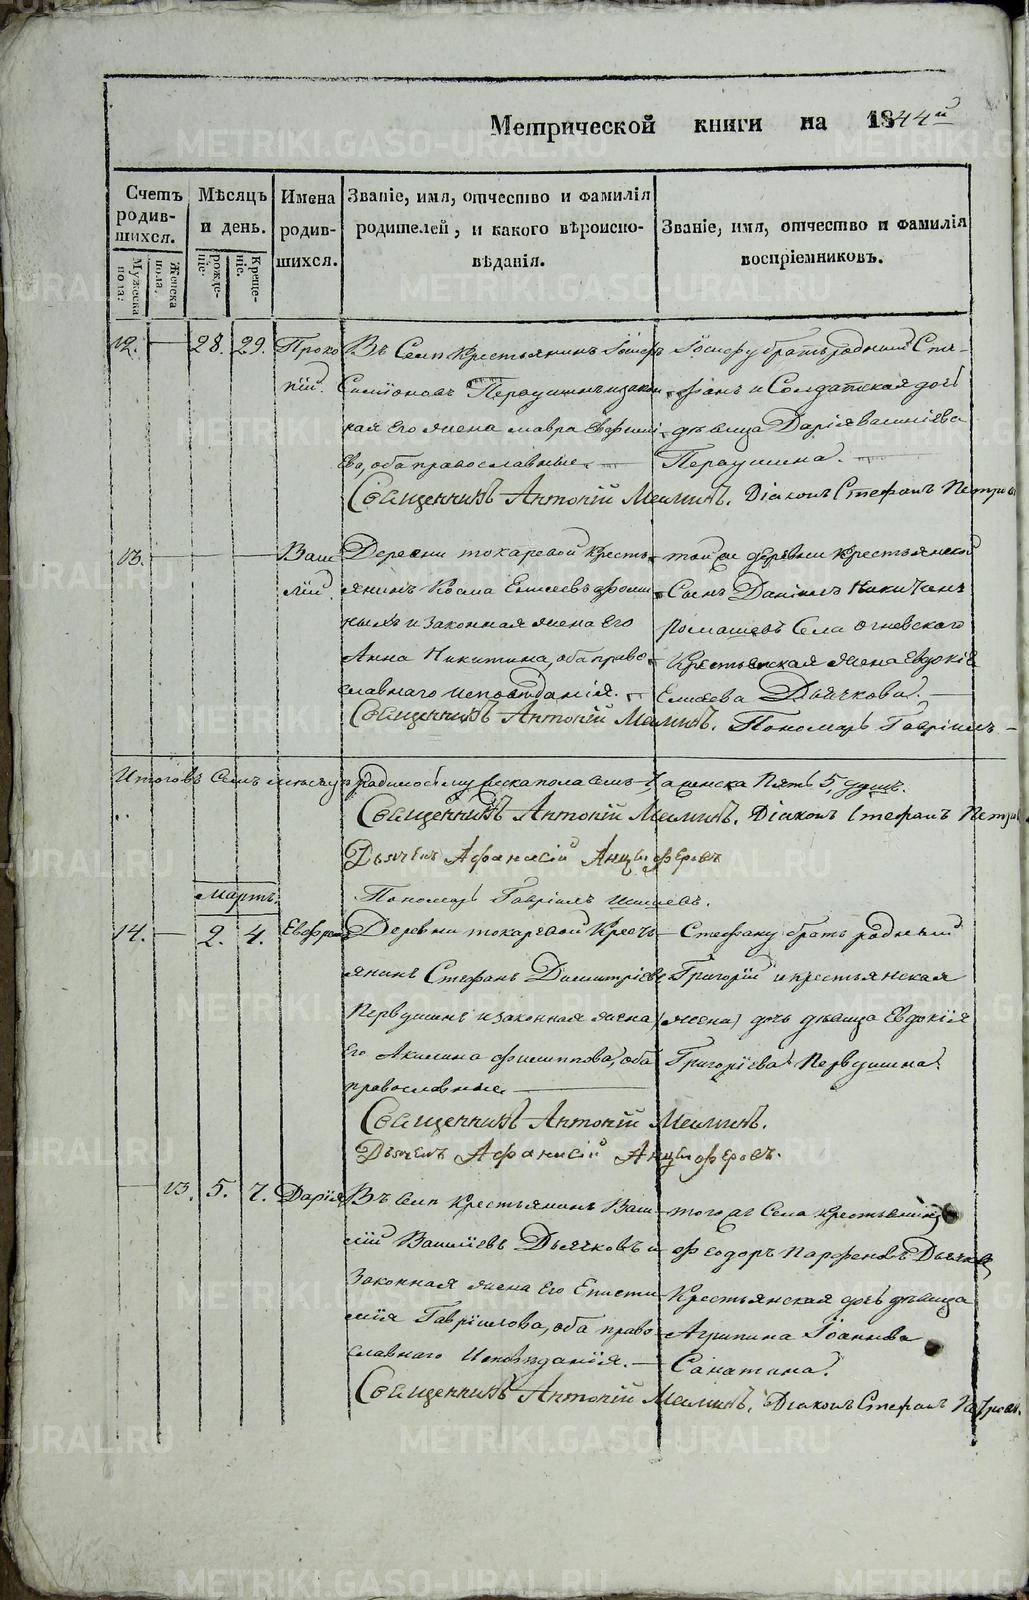 Метрической книги на 1844й
Счетъ родив-шихся.
Мужеска пола.
Женска пола.
Мѣсяцъ и день.
рожде-нія.
Креще-нія.
Имена родив-шихся.
Званіе, имя, отчество и фамилія родителей, и какого вѣроиспо-вѣданія.
Званіе, имя, отчество и фамилія воспріемниковъ.
12. — 28. 29. Проко
пій.
Въ Селѣ Крестьянинъ Іосифъ
Симіоновъ Первушинъ и закон
ная его жена Мавра Ефимі
ева, оба православные.
Іосифу братъ родный Сте-
фанъ и Солдатская дочь
дѣвица Дарія Василіева
Первушина.
Священникъ Антоній Діаконъ Стефанъ Петровъ
13. — Васи
лій
Деревни Токаревой Кресть
янинъ Косма Елисеевъ
ныхъ и законная жена его
Анна Никитина, оба право
славнаго исповѣданія.
той же деревни крестьянской
Сынъ Даніилъ Никитинъ
Ромашевъ Села Огневскаго
Крестьянская жена Евдокія
Елисеева Дьячкова.
Священникъ Антоній Пономарь Гавріилъ
Итого въ семъ мѣсяцѣ родилось мужеска пола семь 7, а женска пять 5, душъ.
Священникъ Антоній Діаконъ Стефанъ Петровъ
Дьячекъ Афанасій Анцыферовъ
Пономарь Гавріилъ
Мартъ.
14. — 2. 4. Евфроп
Деревни Токаревой Кресть
янинъ Стефанъ Димитріевъ
Первушинъ и законная жена
его Акилина Филиппова, оба
православные.
Стефану братъ родный
Григорій и крестьянская
(жена) дочь дѣвица Евдокія
Григоріева Первушина.
Священникъ Антоній
Дьячекъ Афанасій Анцыферовъ.
— 13. 5. 7. Дарія
Въ селѣ крестьянинъ Васи
лій Василіевъ Дьячковъ и
законная жена его Епісти
мія Гавріилова, оба право
славнаго исповѣданія.
того же Села крестьянинъ
Феодоръ Парфеновъ Дьячковъ
Крестьянская дочь дѣвица
Агрипина Іоаннова
Санатина.
Священникъ Антоній Діаконъ Стефанъ Петровъ.
METRIKI.GASO-URAL.RU